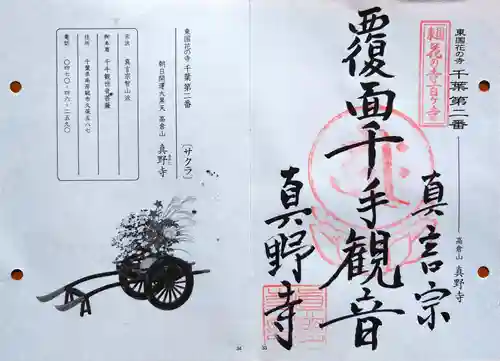 東国花の寺 千葉 第二番
東国花の寺百ヶ寺
高倉山 真野寺
真言宗
覆面千手観音
真野寺
33
東国花の寺 千葉 第二番
〔サクラ〕
朝日開運大黒天 高倉山 真野寺
宗派 真言宗智山派
御本尊 千手観世音菩薩
住所 千葉県南房総市久保五八七
電話 〇四七〇-四六-二五九〇
34